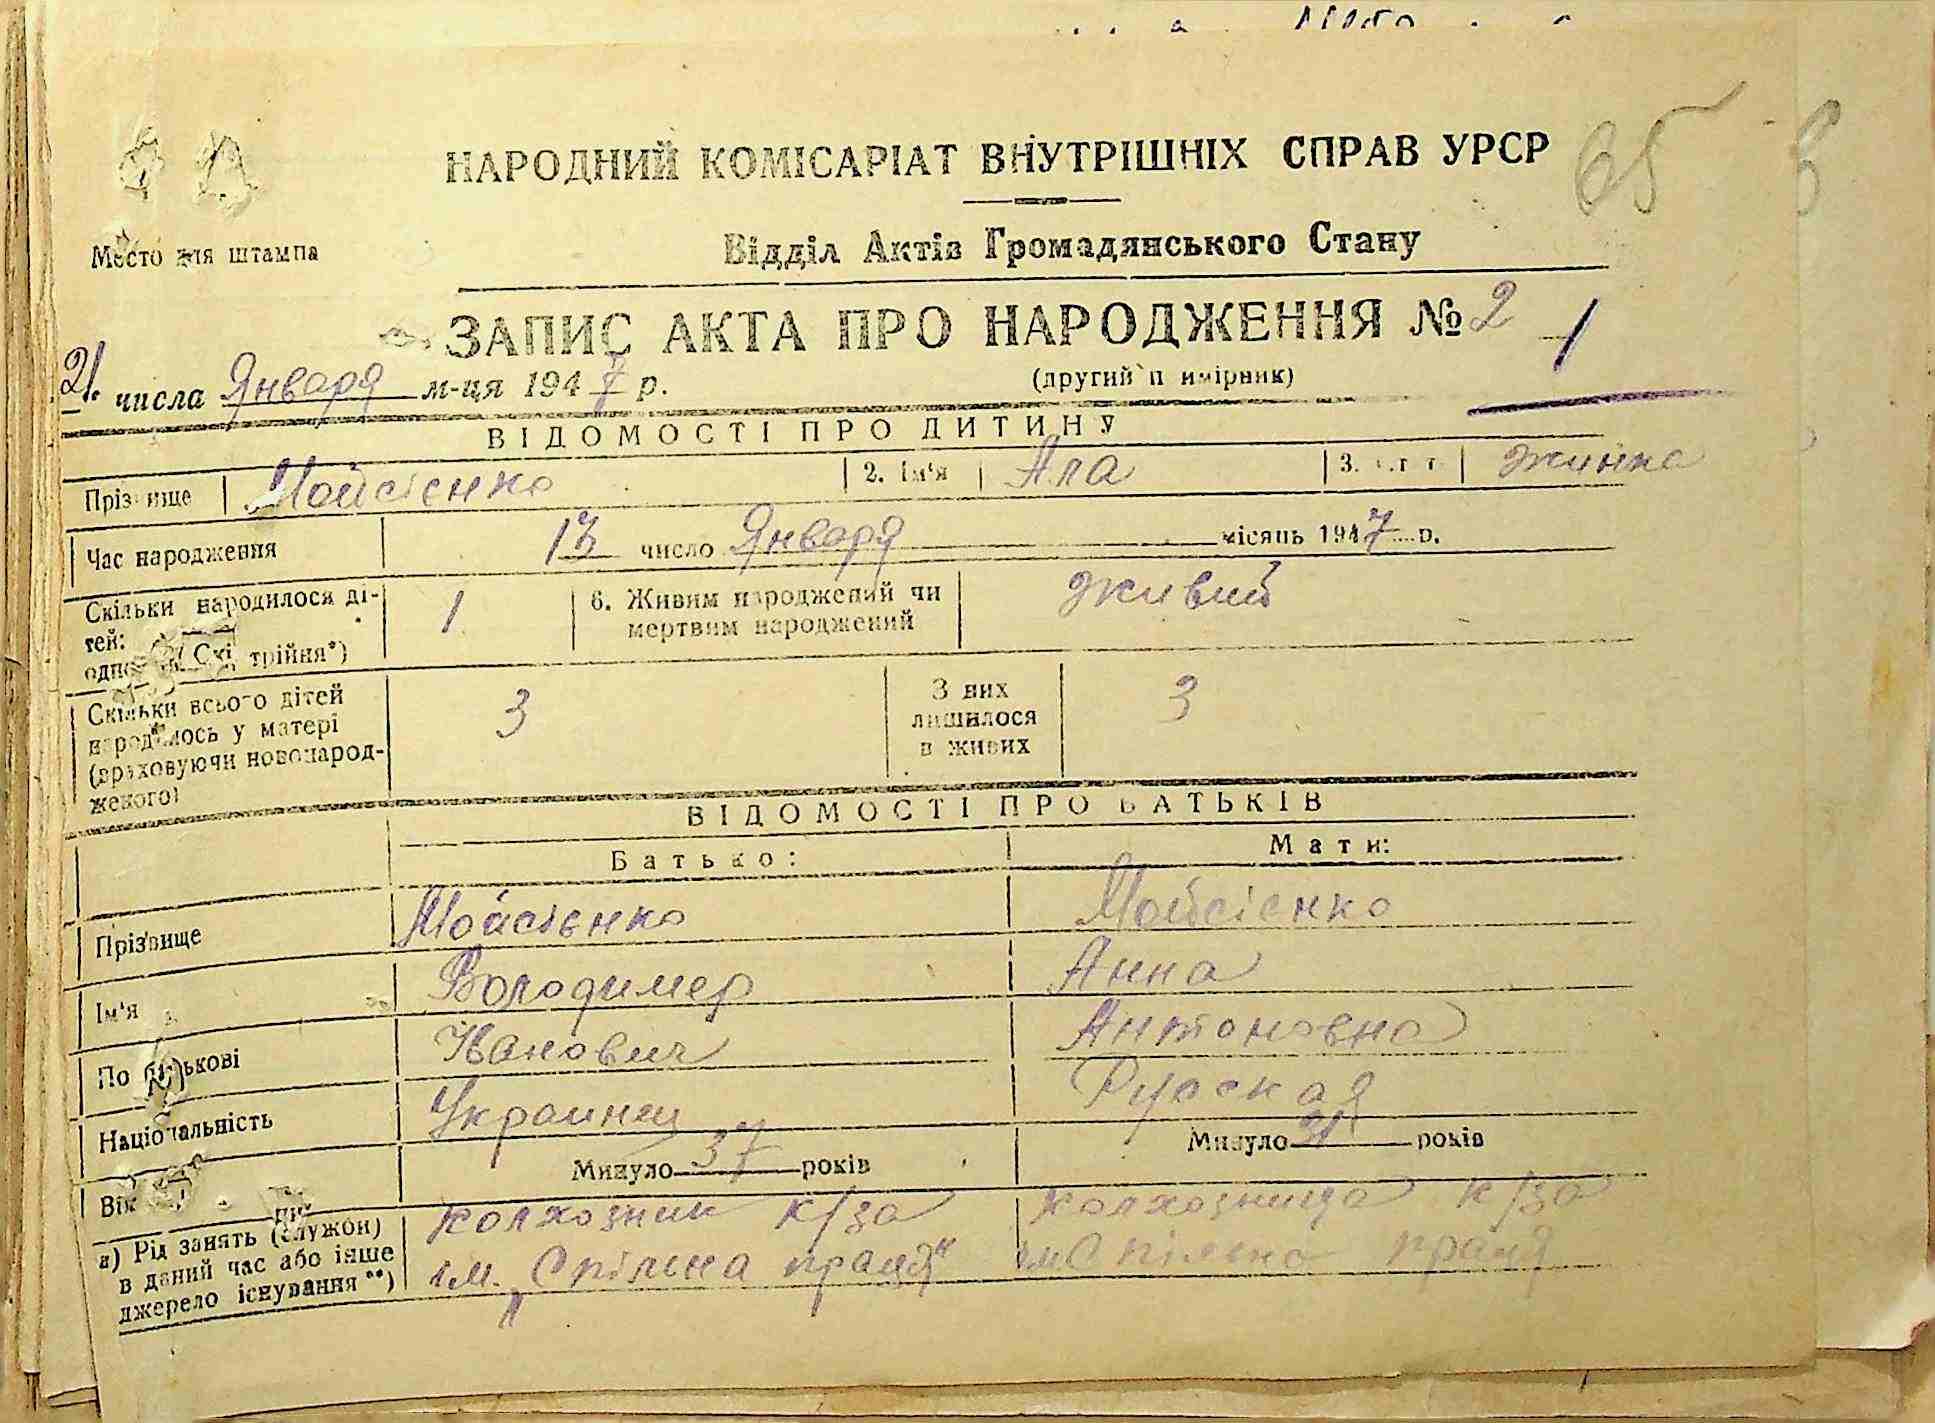 65
НАРОДНИЙ КОМІСАРІАТ ВНУТРІШНІХ СПРАВ УРСР
Место для штампа
Відділ Актів Громадянського Стану
ЗАПИС АКТА ПРО НАРОДЖЕННЯ № 2 1
21 числа Января м-ця 1947 р. (другий п имірник)
ВІДОМОСТІ ПРО ДИТИНУ
Прізвище Мойсієнко 2. Ім'я Ала 3. жинка
Час народження 13 число Января місяць 1947 р.
Скільки народилося ді-
тей: 1 6. Живим народжений чи мертвим народжений живий
трійня*)
Скільки всього дітей
народилось у матері 3 З них лишилося в живих 3
(враховуючи новонарод-
женого)
ВІДОМОСТІ ПРО БАТЬКІВ
Батько: Мати:
Прізвище Мойсієнко Мойсієнко
Ім'я Володимер Анна
По батькові Іванович Антоновна
Національність Украинец Русская
Вік Минуло 37 років Минуло 31 років
а) Рід занять (служби) колхозник к/за колхозница к/за
в даний час або інше ім. „Спільна праця" ім Спільна праця
джерело існування **)